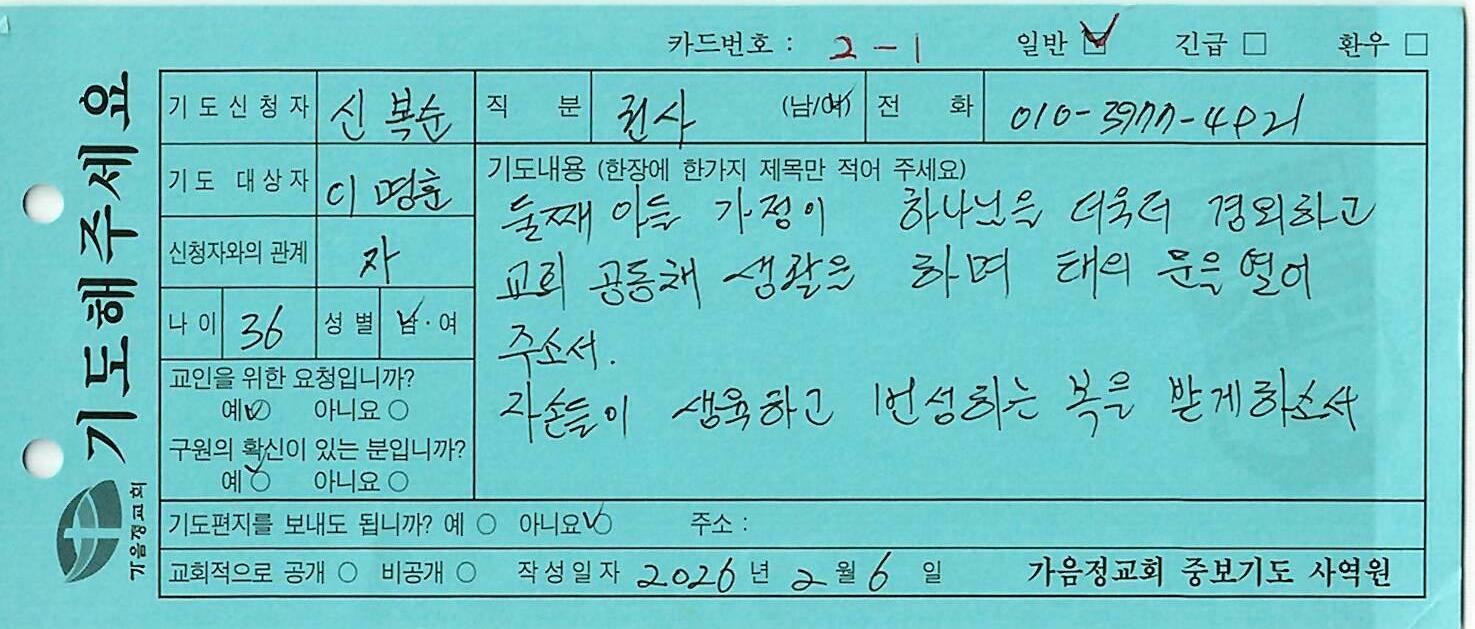 카드번호 : 2-1 일반 ☑ 긴급 □ 환우 □
기도해주세요
가음정교회
기도신청자 신복순 직분 권사 (남/여) 전화
기도 대상자 이명훈
신청자와의 관계 자
나이 36 성별 남·여
교인을 위한 요청입니까?
예 ○ 아니요 ○
구원의 확신이 있는 분입니까?
예 ○ 아니요 ○
기도내용 (한장에 한가지 제목만 적어 주세요)
둘째 아들 가정이 하나님을 더욱더 경외하고
교회 공동채 생활을 하며 태의 문을 열어
주소서.
자손들이 생육하고 번성하는 복을 받게하소서
기도편지를 보내도 됩니까? 예 ○ 아니요 ○ 주소 :
교회적으로 공개 ○ 비공개 ○ 작성일자 2026년 2월 6일 가음정교회 중보기도 사역원